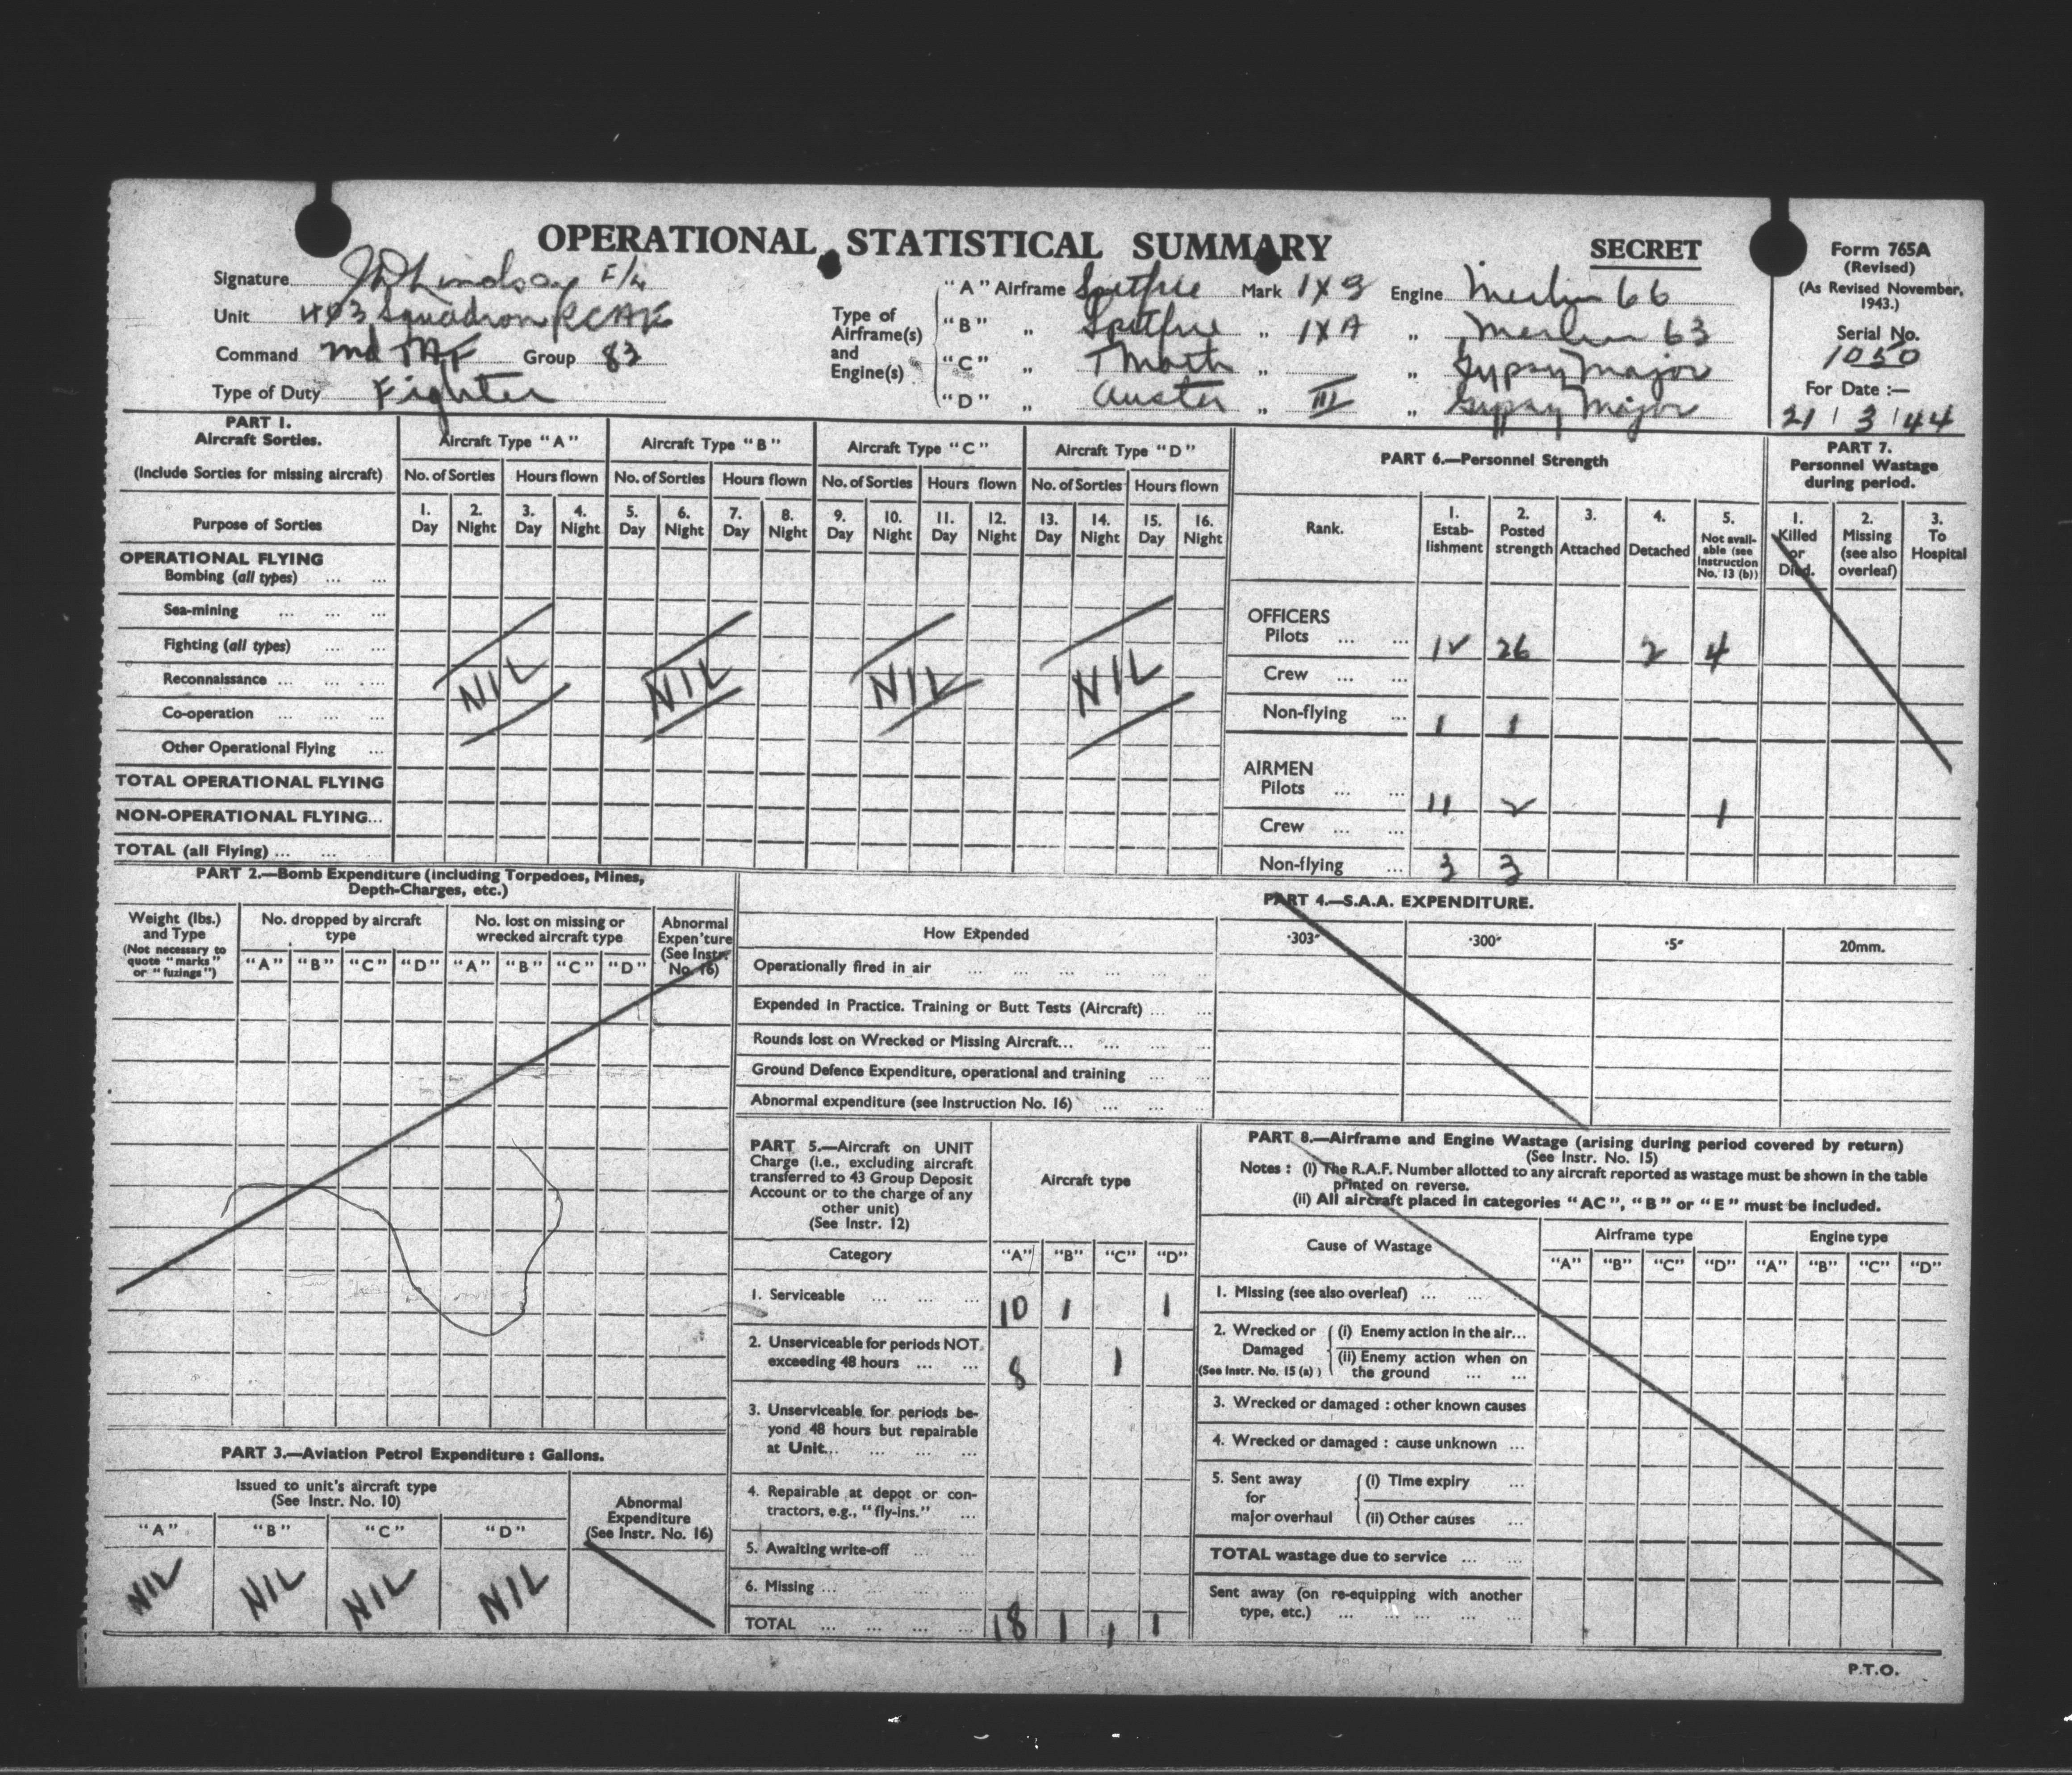 OPERATIONAL STATISTICAL SUMMARY
SECRET
Form 765A
(Revised)
(As Revised November, 1943.)
Serial No.
1050
For Date :—
21 3 44
Signature JD Lindsay F/L
Unit 403 Squadron RCAF
Command 2nd TAF Group 83
Type of Duty Fighter
Type of Airframe(s) and Engine(s)
"A" Airframe Spitfire Mark IXB Engine Merlin 66
"B" „ Spitfire „ IXA „ Merlin 63
"C" „ T Moth „ „ Gypsy Major
"D" „ Auster „ III „ Gypsy Major
PART 1.
Aircraft Sorties.
(Include Sorties for missing aircraft)
Purpose of Sorties
Aircraft Type "A" Aircraft Type "B" Aircraft Type "C" Aircraft Type "D"
No. of Sorties Hours flown No. of Sorties Hours flown No. of Sorties Hours flown No. of Sorties Hours flown
1. Day 2. Night 3. Day 4. Night 5. Day 6. Night 7. Day 8. Night 9. Day 10. Night 11. Day 12. Night 13. Day 14. Night 15. Day 16. Night
OPERATIONAL FLYING
Bombing (all types) ... ...
Sea-mining ... ... ...
Fighting (all types) ... ...
Reconnaissance ... ... ...
Co-operation ... ... ...
Other Operational Flying ...
NIL NIL NIL NIL
TOTAL OPERATIONAL FLYING
NON-OPERATIONAL FLYING...
TOTAL (all Flying) ... ...
PART 6.—Personnel Strength
Rank.
1. Estab-lishment 2. Posted strength 3. Attached 4. Detached 5. Not avail-able (see Instruction No. 13 (b))
OFFICERS
Pilots ... ... 12 26 2 4
Crew ... ...
Non-flying ... 1 1
AIRMEN
Pilots ... ... 11 2 1
Crew ... ...
Non-flying ... 3 3
PART 7.
Personnel Wastage during period.
1. Killed or Died. 2. Missing (see also overleaf) 3. To Hospital
PART 2.—Bomb Expenditure (including Torpedoes, Mines,
Depth-Charges, etc.)
Weight (lbs.) and Type
(Not necessary to quote "marks" or "fuzings")
No. dropped by aircraft type
No. lost on missing or wrecked aircraft type
Abnormal Expen'ture (See Instr. No. 16)
"A" "B" "C" "D" "A" "B" "C" "D"
PART 3.—Aviation Petrol Expenditure : Gallons.
Issued to unit's aircraft type
(See Instr. No. 10)
Abnormal Expenditure (See Instr. No. 16)
"A" "B" "C" "D"
NIL NIL NIL NIL
PART 4.—S.A.A. EXPENDITURE.
How Expended ·303" ·300" ·5" 20mm.
Operationally fired in air ... ... ... ... ... ...
Expended in Practice. Training or Butt Tests (Aircraft) ... ...
Rounds lost on Wrecked or Missing Aircraft... ... ... ...
Ground Defence Expenditure, operational and training ... ...
Abnormal expenditure (see Instruction No. 16) ... ... ...
PART 5.—Aircraft on UNIT
Charge (i.e., excluding aircraft
transferred to 43 Group Deposit
Account or to the charge of any
other unit)
(See Instr. 12)
Aircraft type
Category "A" "B" "C" "D"
1. Serviceable ... ... ... 10 1 1
2. Unserviceable for periods NOT
exceeding 48 hours ... ... 8 1
3. Unserviceable for periods be-
yond 48 hours but repairable
at Unit... ... ... ...
4. Repairable at depot or con-
tractors, e.g., "fly-ins." ...
5. Awaiting write-off ... ...
6. Missing ... ... ... ...
TOTAL ... ... ... ... 18 1 1 1
PART 8.—Airframe and Engine Wastage (arising during period covered by return)
(See Instr. No. 15)
Notes : (i) The R.A.F. Number allotted to any aircraft reported as wastage must be shown in the table
printed on reverse.
(ii) All aircraft placed in categories "AC", "B" or "E" must be included.
Cause of Wastage Airframe type Engine type
"A" "B" "C" "D" "A" "B" "C" "D"
1. Missing (see also overleaf) ... ...
2. Wrecked or Damaged (See Instr. No. 15 (a) )
(i) Enemy action in the air...
(ii) Enemy action when on
the ground ... ...
3. Wrecked or damaged : other known causes
4. Wrecked or damaged : cause unknown ...
5. Sent away for major overhaul
(i) Time expiry ...
(ii) Other causes ...
TOTAL wastage due to service ... ...
Sent away (on re-equipping with another
type, etc.) ... ... ... ... ...
P.T.O.